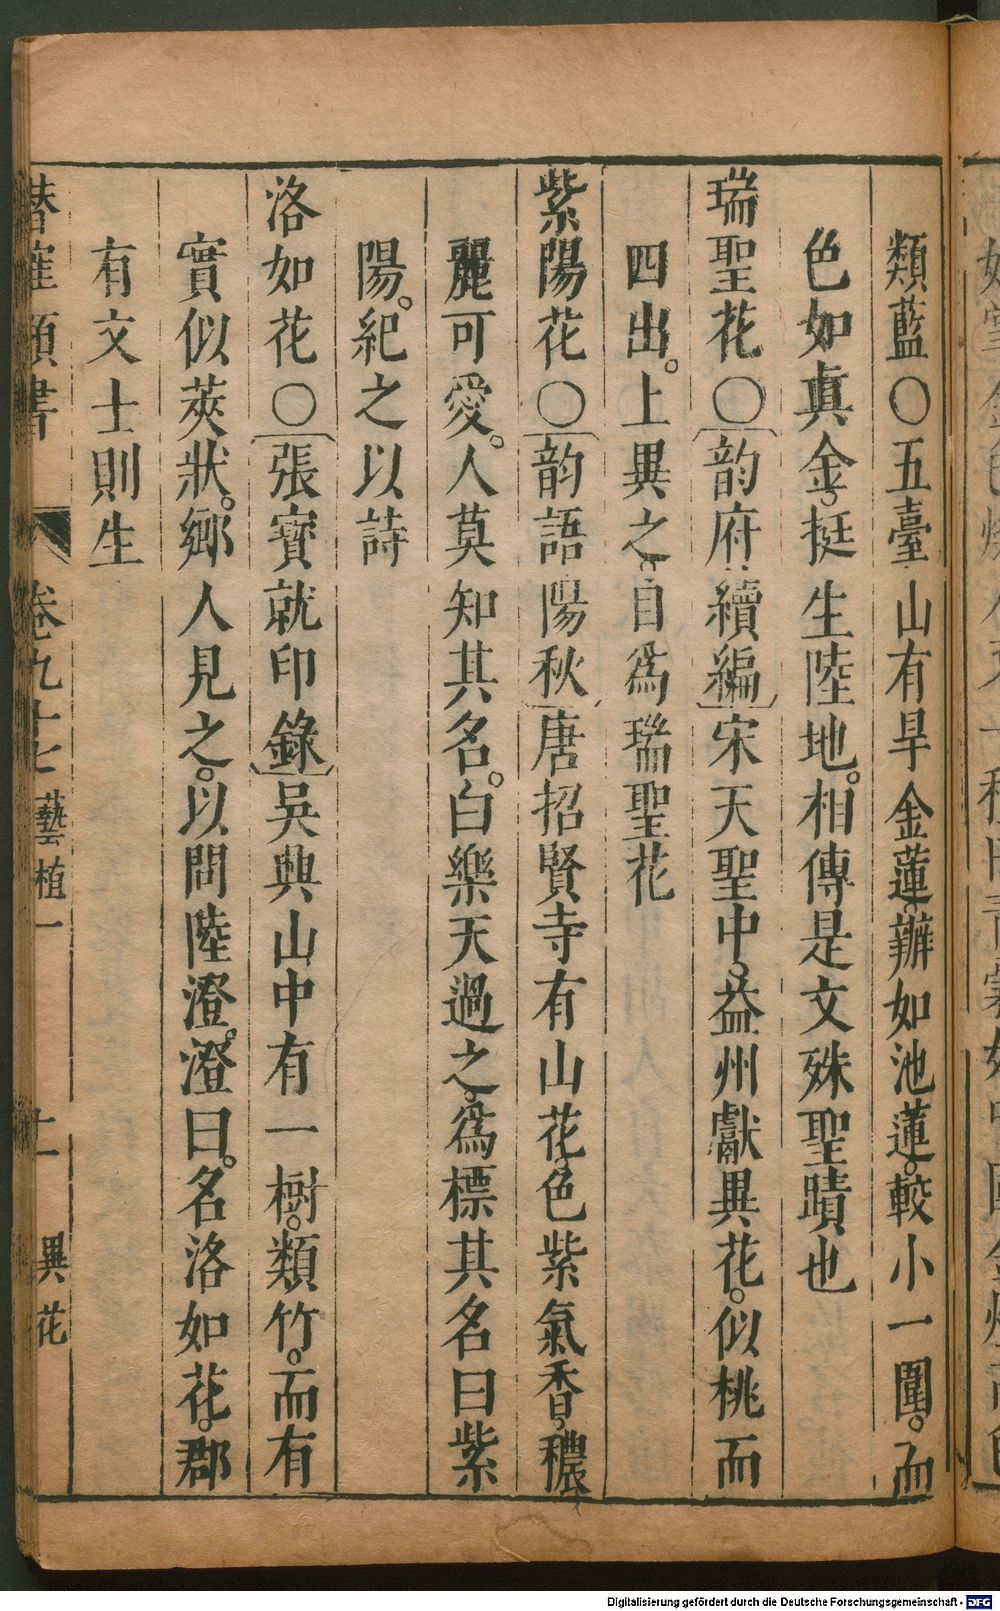 類藍○五臺山有旱金蓮瓣如池蓮。較小一圍。而
色如眞金。挺生陸地。相傳是文殊聖蹟也
瑞聖花○〔韵府續編〕宋天聖中。益州獻異花。似桃而
四出。上異之。自爲瑞聖花
紫陽花○〔韵語陽秋〕唐招賢寺有山花。色紫氣香。穠
麗可愛。人莫知其名。白樂天過之。爲標其名曰紫
陽。紀之以詩
洛如花○〔張寶就印錄〕吳興山中有一樹。類竹。而有
實似莢狀。鄉人見之。以問陸澄。澄曰。名洛如花。郡
有文士則生
類書 卷九十七 藝植一 十一 異花
Digitalisierung gefördert durch die Deutsche Forschungsgemeinschaft - DFG